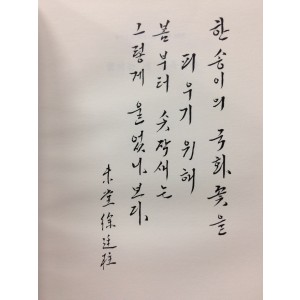 한 송이의 국화꽃을
피우기 위해
봄부터 솟작새는
그렇게 울었나보다.
未堂 徐廷柱